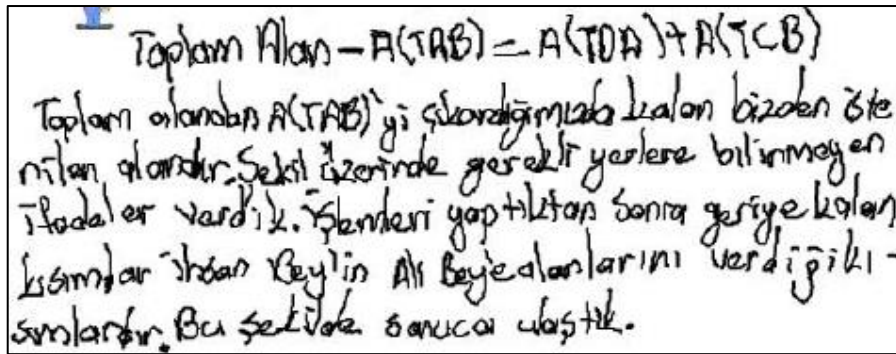 Toplam Alan - A(TAB) = A(TDA) + A(TCB)
Toplam alandan A(TAB)'yi çıkardığımızda kalan bizden iste
nilen alandır. Şekil üzerinde gerekli yerlere bilinmeyen
ifadeler verdik. İşlemleri yaptıktan sonra geriye kalan
kısımlar İhsan Bey'in Ali Beye alanlarını verdiği kı-
sımlardır. Bu şekilde sonuca ulaştık.